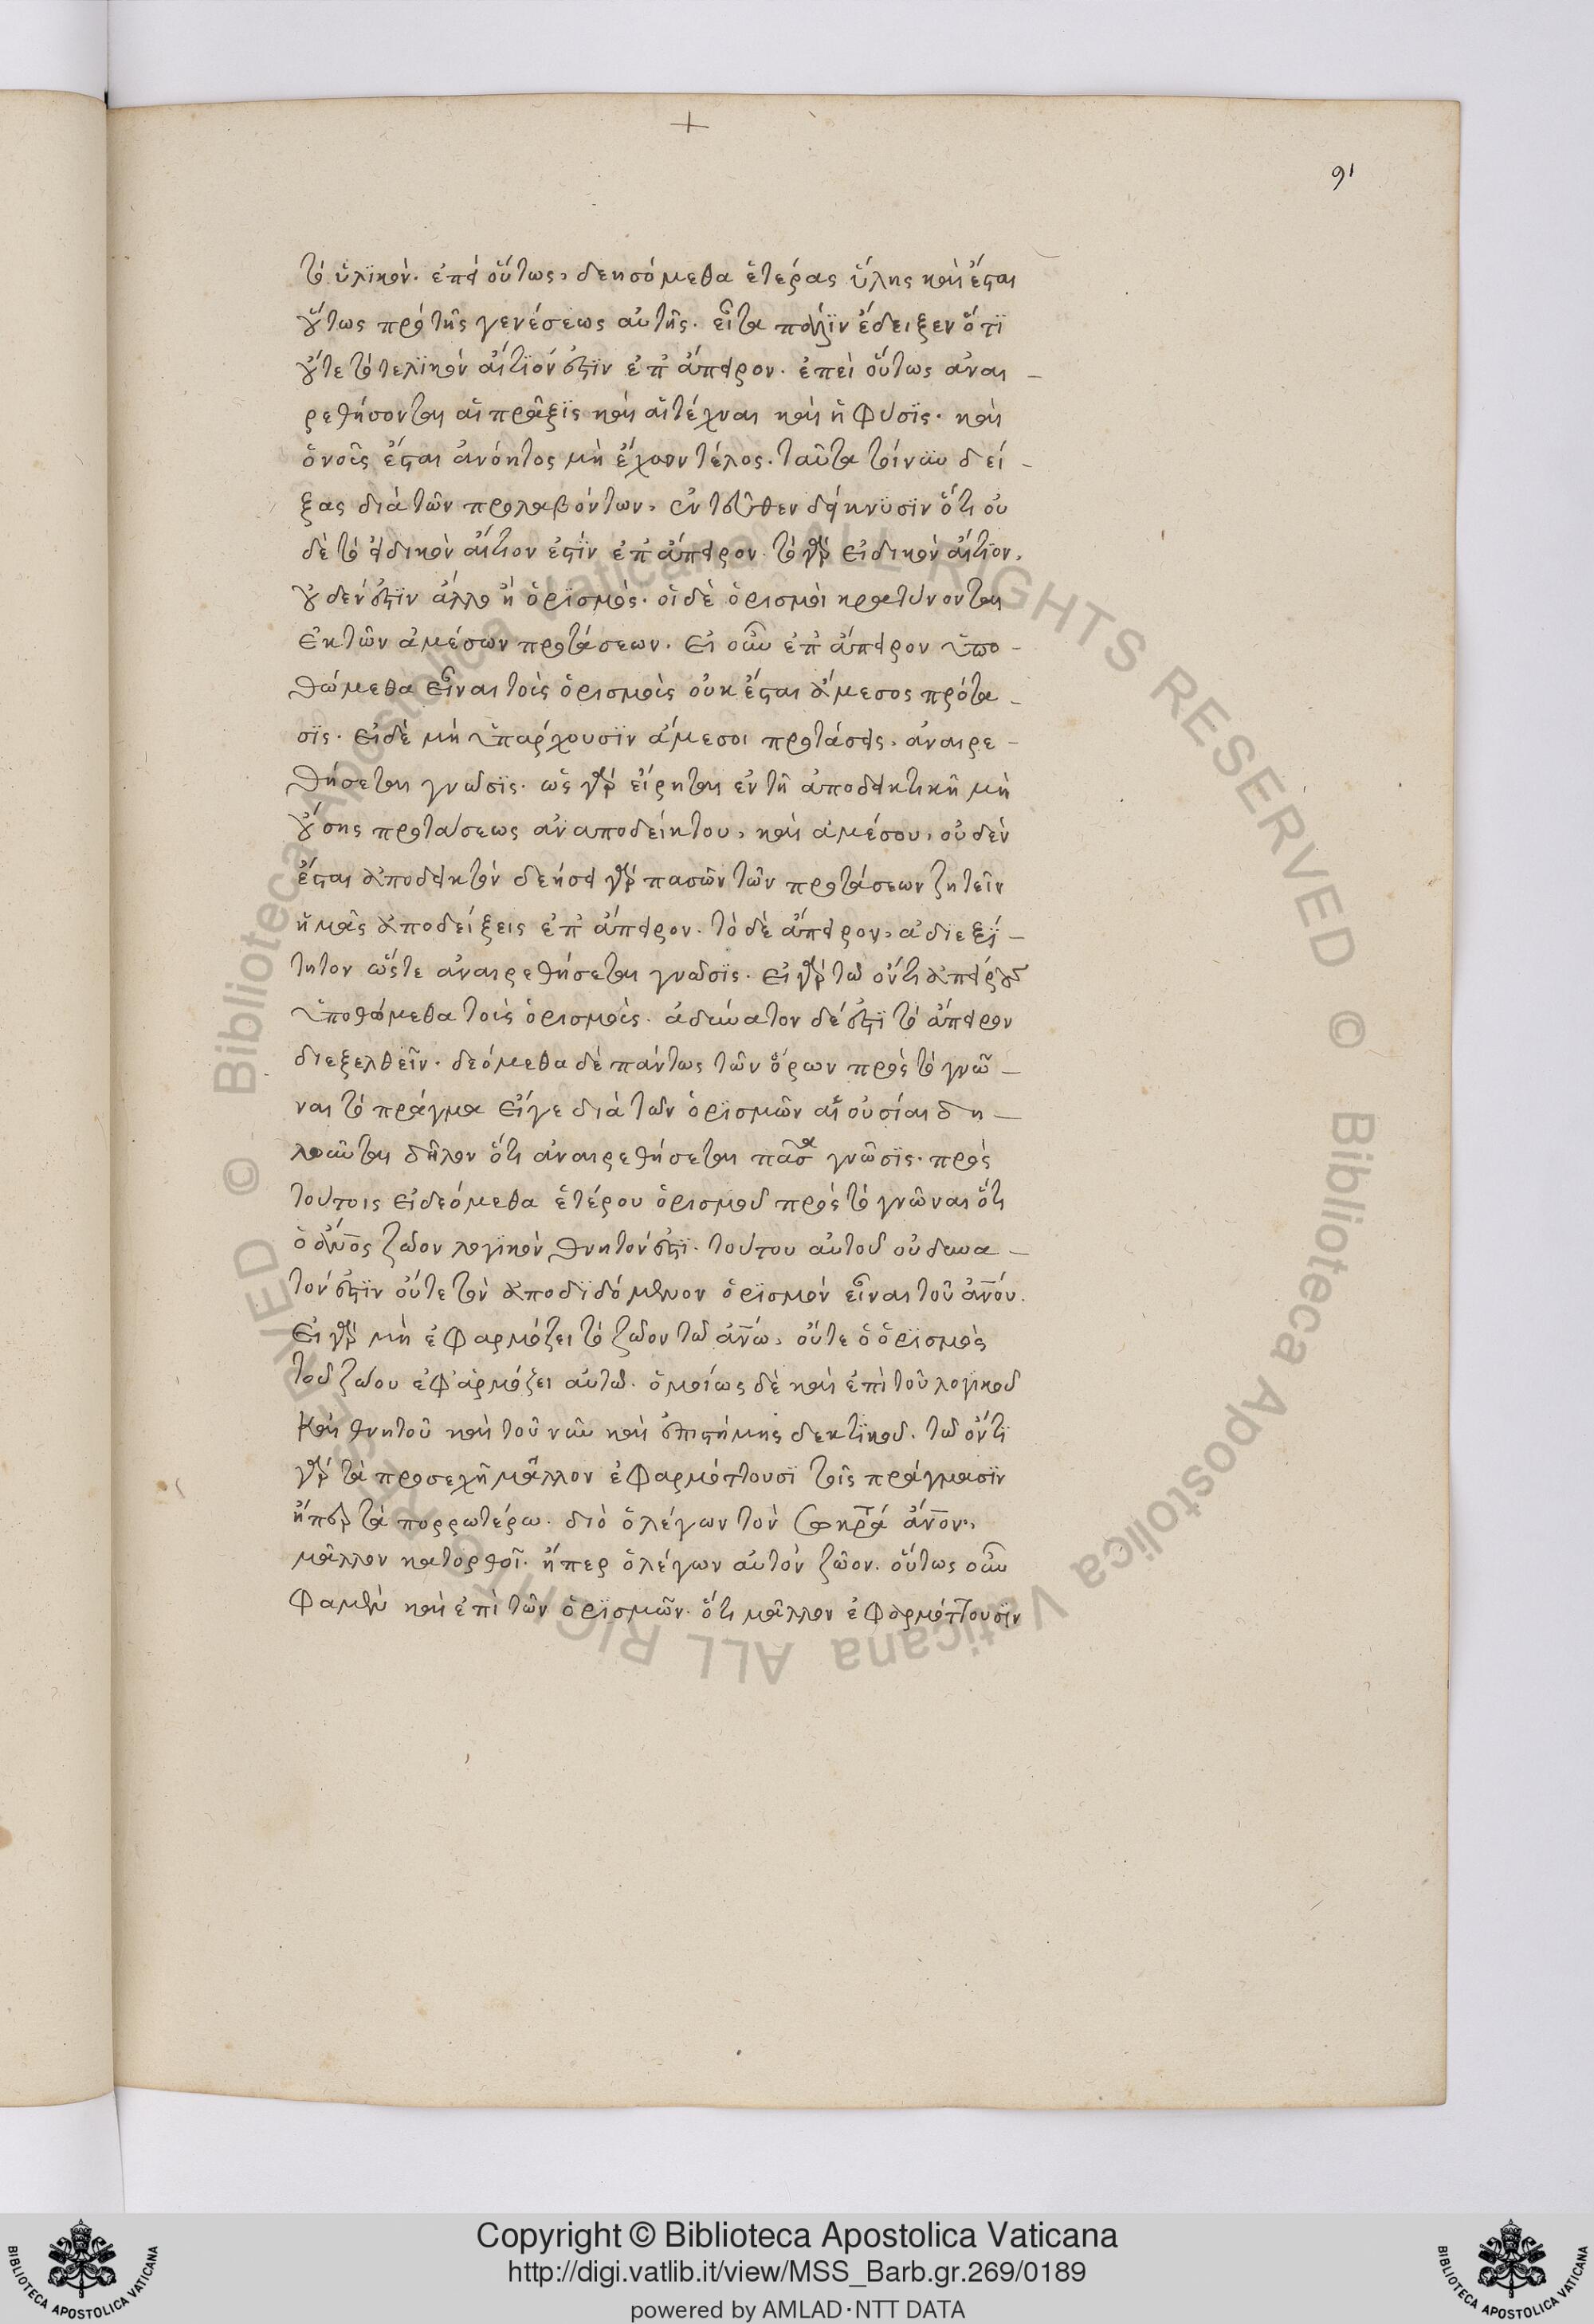 +
91
τὸ ὑλϊκὸν. ἐπεὶ οὕτως, δεησόμεθα ἑτέρας ὕλης καὶ ἔσται
οὕτως πρὸ τῆς γενέσεως αὐτῆς. εἶτα πάλϊν ἔδειξεν ὅτϊ
οὔτε τὸ τελϊκὸν αἴτϊόν ἐστϊν ἐπ' ἄπειρον. ἐπεὶ οὕτως αναι-
ρεθήσονται αἱ πράξϊς καὶ αἱ τέχναι καὶ ἡ φύσϊς. καὶ
ὁ νοῦς ἔσται ἀνόητος μὴ ἔχων τέλος. ταῦτα τοίνυν δεί-
ξας διὰ τῶν προλαβόντων, ἐντεῦθεν δείκνυσϊν ὅτι ου
δὲ τὸ εἰδικὸν αἴτιον ἐστϊν ἐπ' ἄπειρον. τὸ γὰρ εἰδικὸν αἴτϊον,
οὐδέν ἐστϊν ἄλλο ἢ ὁρϊσμὸς. οἱ δὲ ὁρισμοὶ κρατύνονται
ἐκ τῶν ἀμέσων προτάσεων. εἰ οὖν ἐπ' ἄπειρον ὑπο-
θώμεθα εἶναι τοὶς ὁρισμοὶς οὐκ ἔσται ἄμεσος πρότα-
σϊς. εἰ δὲ μὴ ὑπαρχουσϊν ἄμεσοι προτάσεις, ἀναιρε-
θήσεται γνῶσϊς. ὡς γὰρ εἴρηται ἐν τῆ ἀποδεικτικῆ μὴ
οὔσης προτάσεως ἀναποδείκτου, καὶ ἀμέσου, οὐδὲν
ἔσται ἀποδεικτὸν δεήσει γὰρ πασῶν τῶν προτάσεων ζητεῖν
ἡμᾶς ἀποδείξεις ἐπ' ἄπειρον. τὸ δὲ ἄπειρον, ἀδϊεξϊ-
τητον ὥστε ἀναιρεθήσεται γνῶσϊς. εἰ γὰρ τῶ ὄντι ἀπείρου
ὑποθώμεθα τοὶς ὁρισμοὶς. ἀδύνατον δέ ἐστϊ τὸ ἄπειρον
διεξελθεῖν. δεόμεθα δὲ πάντως τῶν ὅρων πρὸς τὸ γνῶ-
ναι τὸ πράγμα εἴγε διὰ τῶν ὁρϊσμῶν αἱ οὐσίαι δη-
λοῦνται δῆλον ὅτι ἀναιρεθήσεται πᾶσα γνῶσϊς. πρὸς
τούτοις εἰ δεόμεθα ἑτέρου ὁρισμοῦ πρὸς τὸ γνῶναι ὅτι
ὁ ἄνος ζῶον λογϊκὸν θνητόν ἐστϊ. τούτου αὐτοῦ οὐ δυνα-
τόν ἐστϊν οὔτε τὸν ἀποδϊδόμενον ὁρϊσμὸν εἶναι τοῦ ἀνου.
εἰ γὰρ μὴ ἐφαρμόζει τὸ ζῶον τῶ ἀνω, οὔτε ὁ ὁρϊσμὸς
τοῦ ζώου ἐφαρμόζει αὐτῶ. ὁμοίως δὲ καὶ ἐπὶ τοῦ λογϊκοῦ
καὶ θνητοῦ καὶ τοῦ νοῦ καὶ ἐπιστήμης δεκτϊκοῦ. τῶ ὄντϊ
γὰρ τὰ προσεχῆ μᾶλλον ἐφαρμόττουσϊ τοῖς πράγμασϊν
ἤπερ τὰ πορρωτέρω. διὸ ὁ λέγων τὸν σωκρα ἄνον,
μᾶλλον κατορθοῖ. ἤπερ ὁ λέγων αὐτὸν ζῶον. οὕτως οὖν
φαμὲν καὶ ἐπὶ τῶν ὁρϊσμῶν. ὅτι μᾶλλον ἐφαρμόττουσϊν
Copyright © Biblioteca Apostolica Vaticana
http://digi.vatlib.it/view/MSS_Barb.gr.269/0189
powered by AMLAD·NTT DATA
BIBLIOTECA APOSTOLICA VATICANA
BIBLIOTECA APOSTOLICA VATICANA
© Biblioteca Apostolica Vaticana ALL RIGHTS RESERVED © Biblioteca Apostolica Vaticana ALL RIGHTS RESERVED